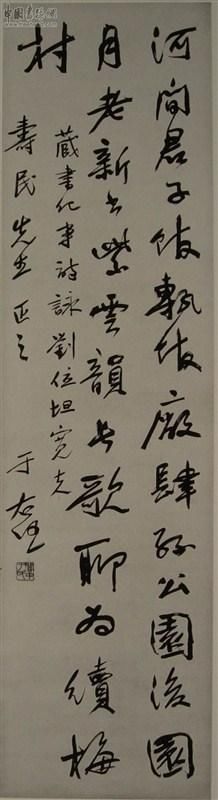 河間君子館甎館廠肆孫公園後園
月老新書紫雲韻長歌聊為續梅
村
藏書紀事詩詠劉位坦寬夫
壽民先生正之
于右任